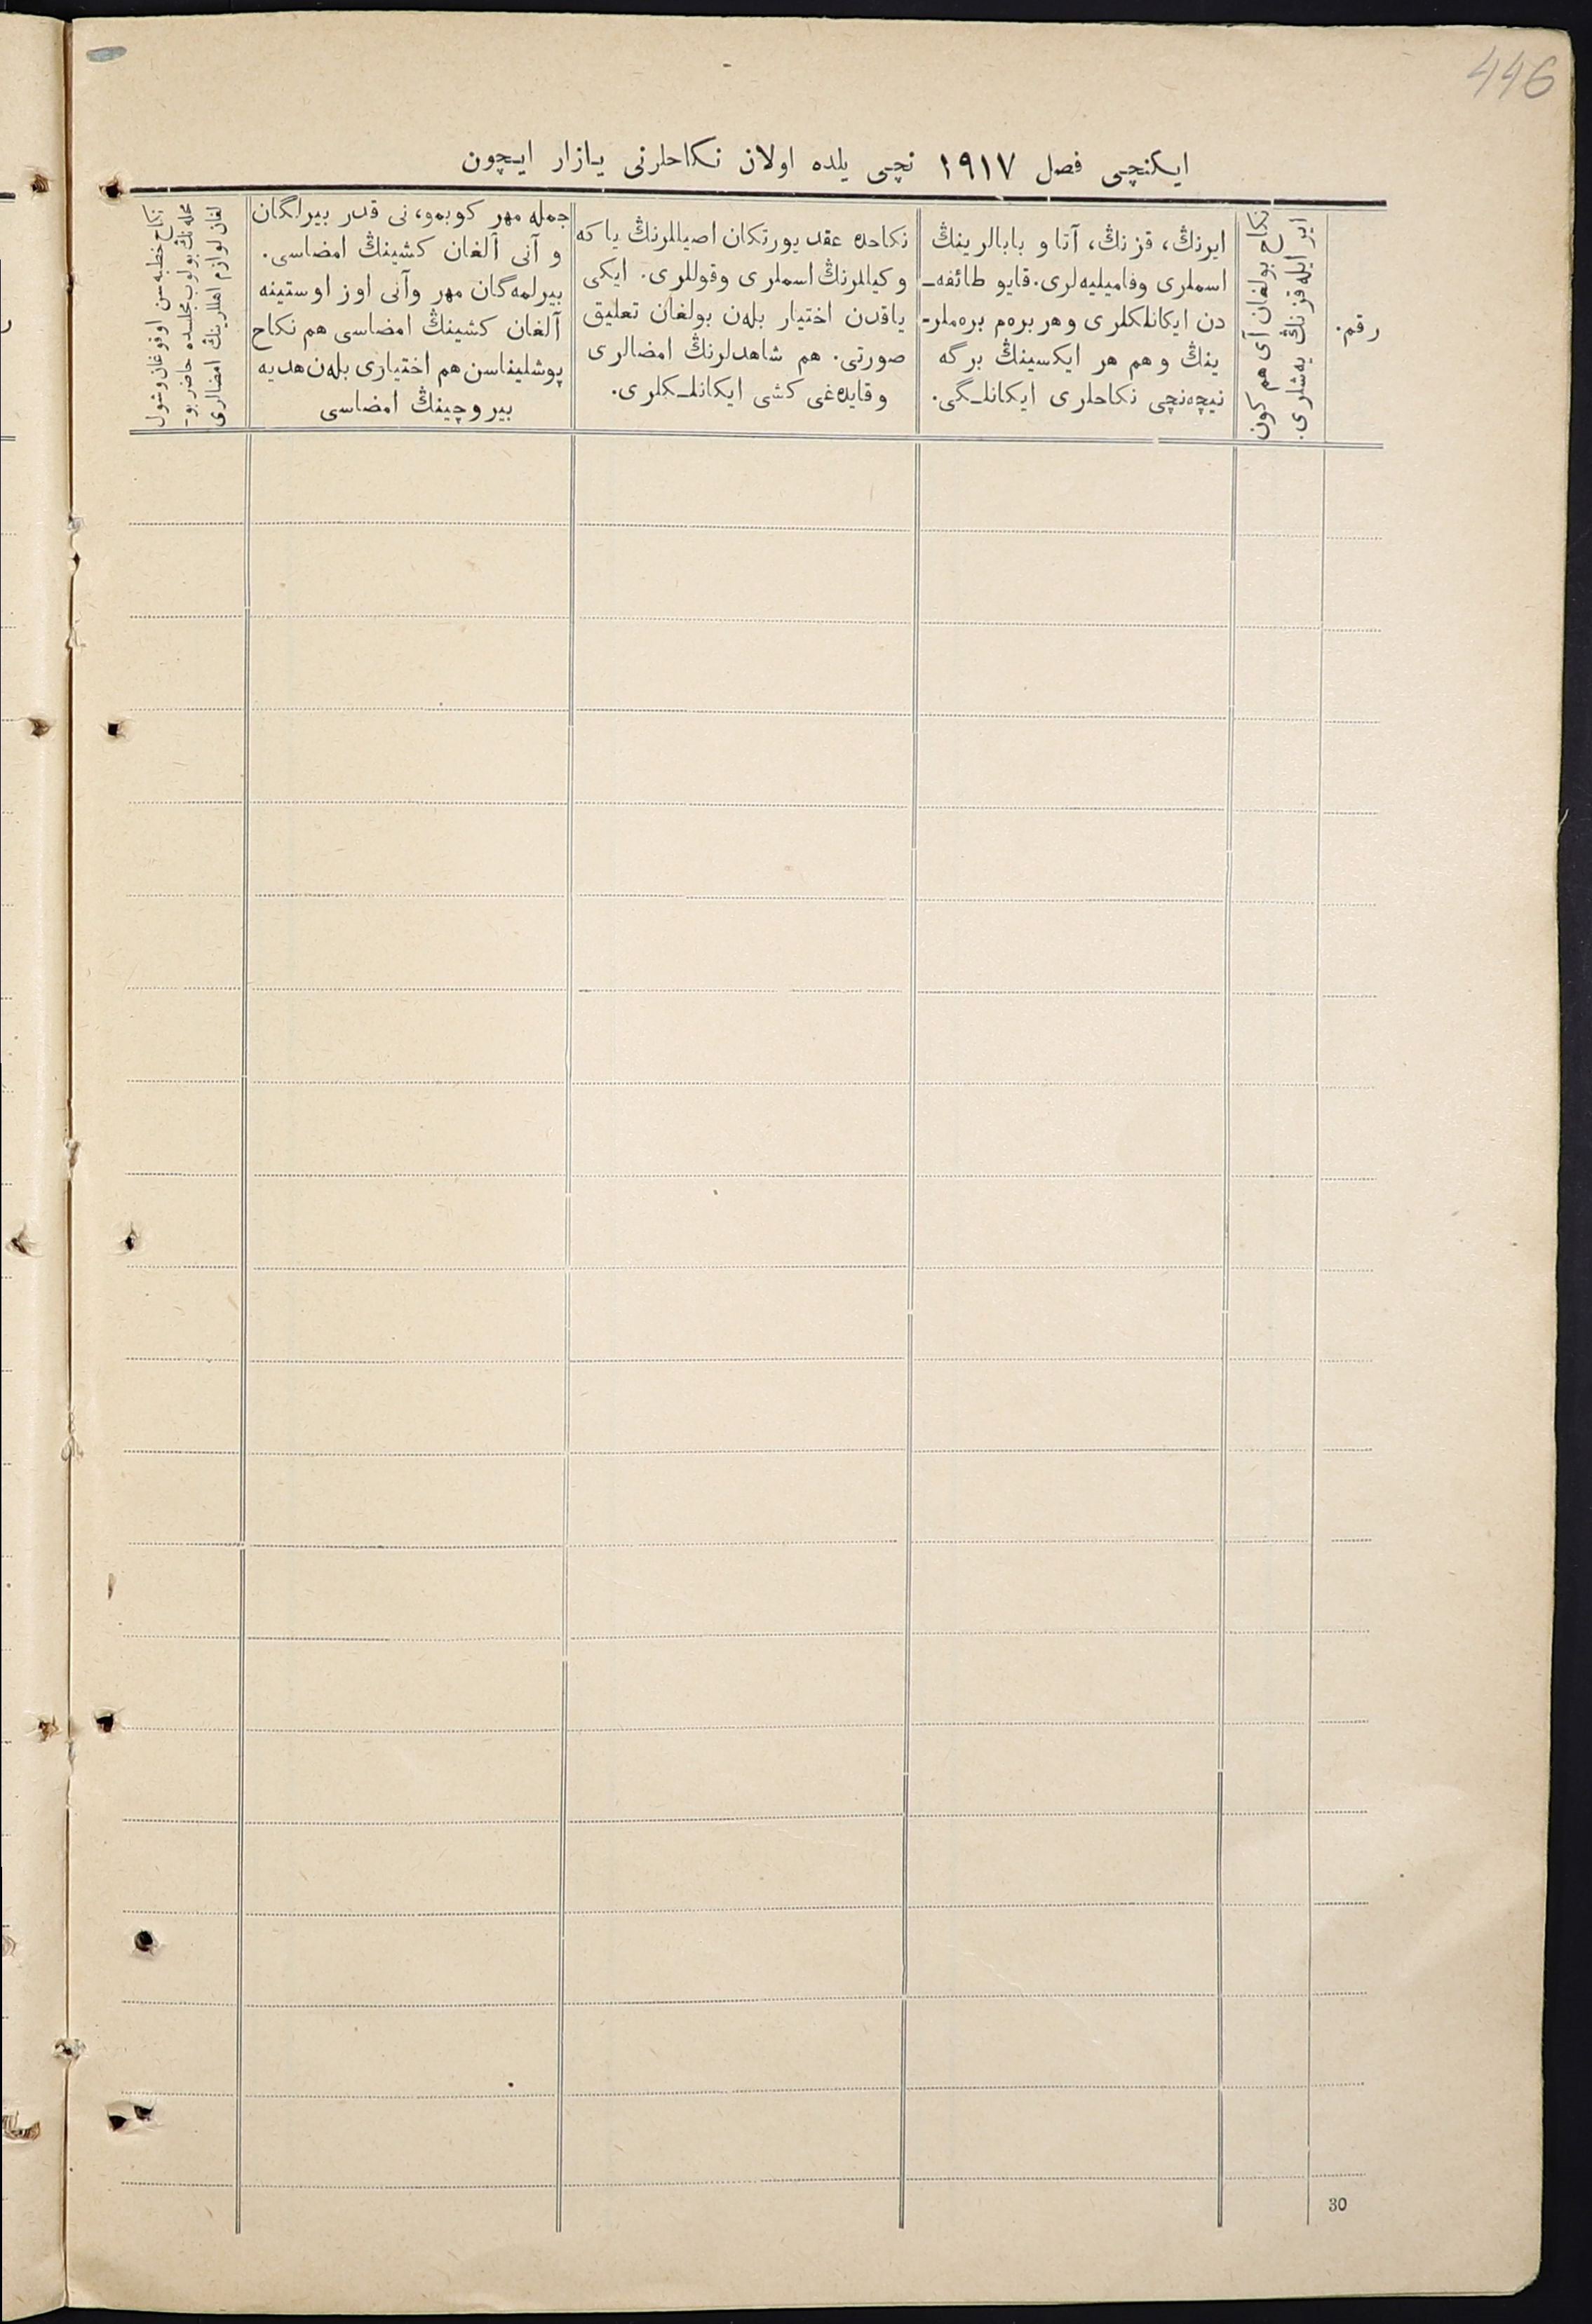 446
ایکنچی فصل ١٩١٧ نچی یلده اولان نکاحلرنی یازار ایچون
رقم.
ایر ایله قزنڭ یه‌شلری.
نکاح بولغان آی هم کون
ایرنڭ، قزنڭ، آتا و بابالرینڭ
اسملری وفامیلیه‌لری. قایو طائفه‌ـ
دن ایکانلکلری و هر بره‌م بره‌ملر-
ینڭ و هم هر ایکسینڭ برگه
نیچه‌نچی نکاحلری ایکانلـگی.
نکاحده عقد یورتکان اصیللرنڭ یا که
وکیللرنڭ اسملری وقوللری. ایکی
یاقدن اختیار بله‌ن بولغان تعلیق
صورتی. هم شاهدلرنڭ امضالری
وقایده‌غی کشی ایکانلـکلری.
جمله مهر کوبمو، نی قدر بیرلگان
و آنی آلغان کشینڭ امضاسی.
بیرلمه‌گان مهر وآنی اوز اوستینه
آلغان کشینڭ امضاسی هم نکاح
پوشلیناسن هم اختیازی بله‌ن هدیه
بیروچینڭ امضاسی
نکاح خطبه‌سن اوقوغان وشول
محله‌نڭ بولوب مجلسده حاضر بو-
لغان لوازم اهللرینڭ امضالری
30